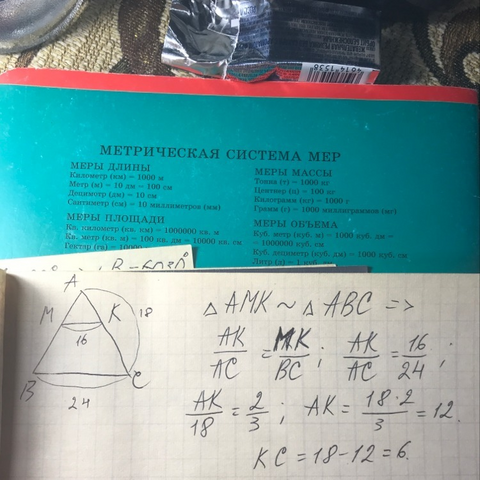 МЕТРИЧЕСКАЯ СИСТЕМА МЕР
МЕРЫ ДЛИНЫ
Километр (км) = 1000 м
Метр (м) = 10 дм = 100 см
Дециметр (дм) = 10 см
Сантиметр (см) = 10 миллиметров (мм)
МЕРЫ ПЛОЩАДИ
Кв. километр (кв. км) = 1000000 кв. м
Кв. метр (кв. м) = 100 кв. дм = 10000 кв. см
Гектар (га) = 10000
МЕРЫ МАССЫ
Тонна (т) = 1000 кг
Центнер (ц) = 100 кг
Килограмм (кг) = 1000 г
Грамм (г) = 1000 миллиграммов (мг)
МЕРЫ ОБЪЕМА
Куб. метр (куб. м) = 1000 куб. дм =
= 1000000 куб. см
Куб. дециметр (куб. дм) = 1000 куб. см
Литр (л) = 1 куб.
A
M K 18
16
B C
24
△AMK ~ △ABC =>
AK/AC = MK/BC ; AK/AC = 16/24 ;
AK/18 = 2/3 ; AK = 18·2/3 = 12.
KC = 18 - 12 = 6.